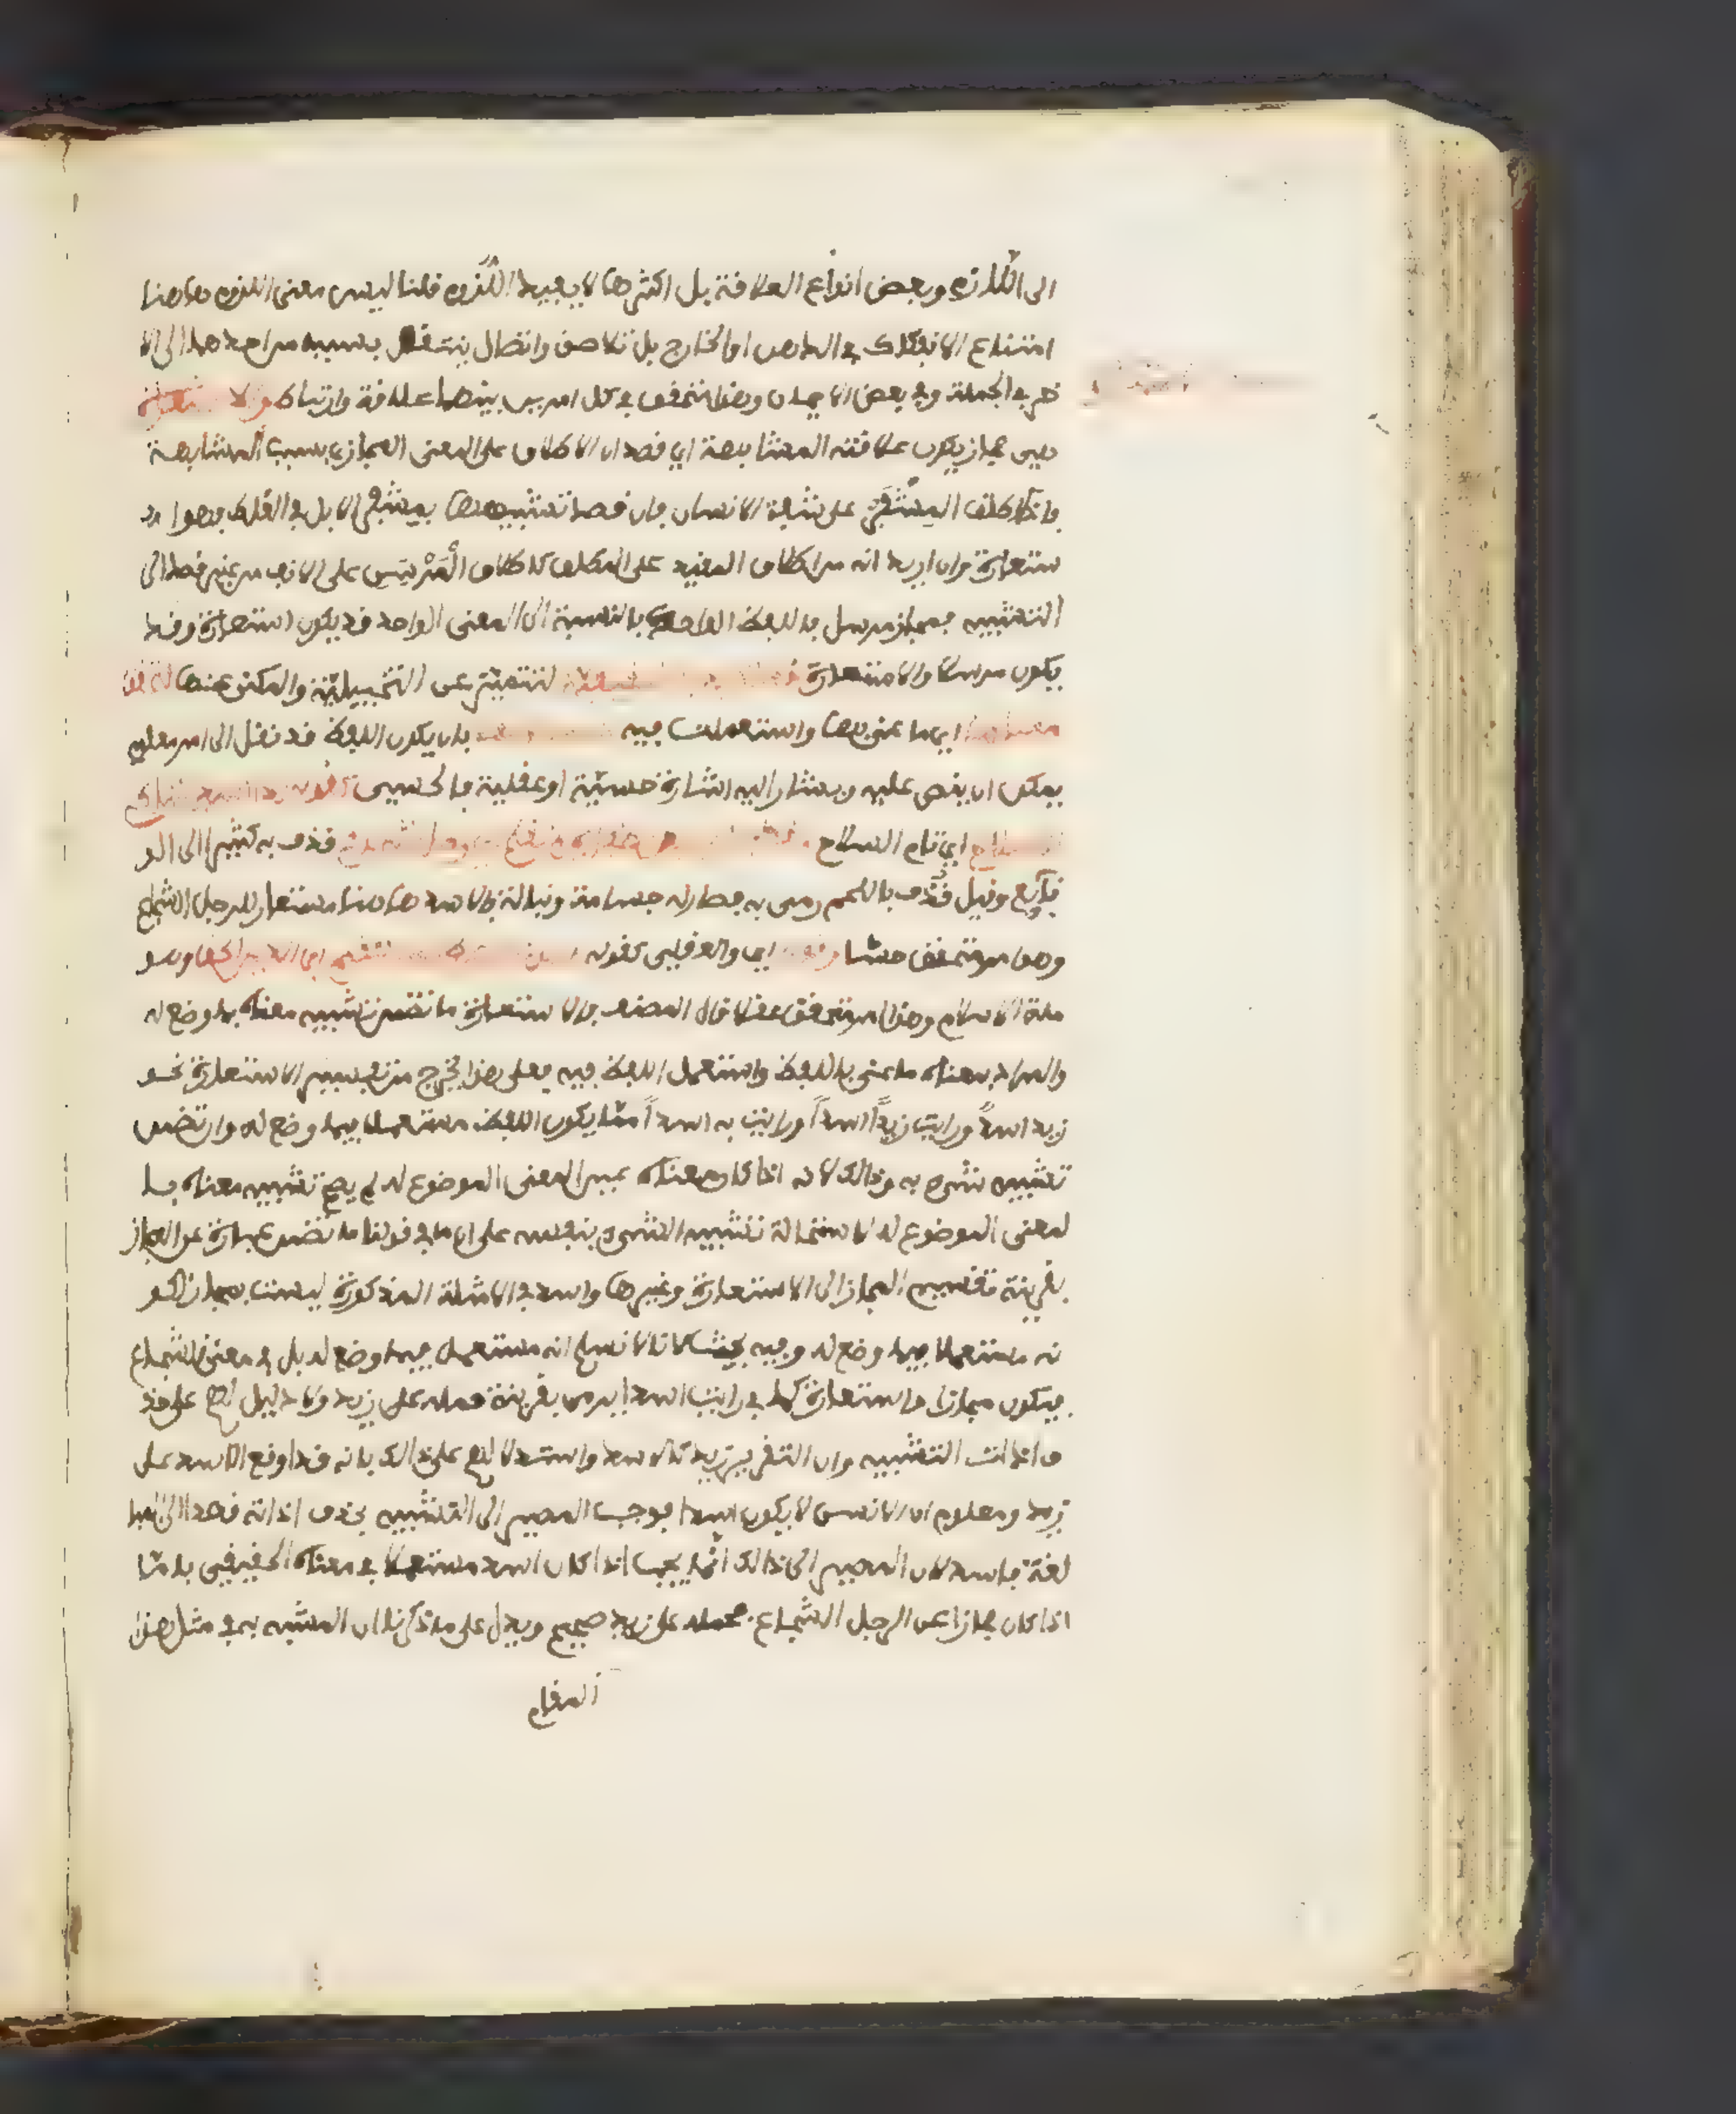 الى اللازم وبعض انواع العلاقة بل اكثرها لا يفيد اللزوم قلنا ليس معنى اللزوم هاهنا
امتناع الانفكاك في الذهن او الخارج بل تلاصق واتصال ينتقل بسببه من احدهما الى الا
خر في الجملة وفي بعض الاحيان وهذا متحقق في كل امرين بينهما علاقة وارتباط والا ستعارة
هي مجاز يكون علاقته المشابهة اي قصد ان الاطلاق على المعنى المجازي بسبب المشابهة
فاذا اطلق المشفر على شفة الانسان فان قصد تشبيهها بمشفر الابل في الغلظ فهو ا
ستعارة وان اريد انه من اطلاق المقيد على المطلق كاطلاق المرسن على الانف من غير قصد الى
التشبيه فمجاز مرسل فاللفظ الواحد بالنسبة الى المعنى الواحد قد يكون استعارة وقد
يكون مرسلا والاستعارة لتتميز عن التخييلية والمكني عنها
معناها اي ما عني بها واستعملت فيه بان يكون اللفظ قد نقل الى امر معلوم
يمكن ان ينص عليه ويشار اليه اشارة حسية او عقلية فالحسي كقوله
اي تام السلاح قذف به كثيرا الى الو
قائع وقيل قذف باللحم رمي به فصار له جسامة ونبالة فالاسد هاهنا مستعار للرجل الشجاع
وهو امر متحقق حسا اي والعقلي كقوله وهو
ملة الاسلام وهذا امر متحقق عقلا قال المصنف فالاستعارة ما تضمن تشبيه معناه بما وضع له
والمراد بمعناه ما عني باللفظ واستعمل اللفظ فيه فعلى هذا يخرج من تفسير الاستعارة نحو
زيد اسدٌ ورايت زيدًا اسدًا ورايت به اسدًا مما يكون اللفظ مستعملا فيما وضع له وان تضمن
تشبيه شيء به وذالك لانه اذا كان معناه عين المعنى الموضوع له لم يصح تشبيه معناه با
لمعنى الموضوع له لاستحالة تشبيه الشيء بنفسه على ان ما في قولنا ما تضمن عبارة عن المجاز
بقرينة تقسيم المجاز الى الاستعارة وغيرها واسد في الامثلة المذكورة ليست بمجاز لكو
نه مستعملا فيما وضع له وفيه بحث لانا لا نسلم انه مستعمل فيما وضع له بل في معنى الشجاع
فيكون مجازا واستعارة كما في رايت اسدا يرمي بقرينة حمله على زيد ولا دليل لهم على حذ
ف اداة التشبيه وان التقرير زيد كالاسد واستدلالهم على ذالك بانه قد اوقع الاسد على
زيد ومعلوم ان الانسان لا يكون اسدا فوجب المصير الى التشبيه بحذف اداته قصدا الى المبا
لغة فاسد لان المصير الى ذالك انما يجب اذا كان اسد مستعملا في معناه الحقيقي واما
اذا كان مجازا عن الرجل الشجاع فحمله على زيد صحيح ويدل على ما ذكرنا ان المشبه به في مثل هذا
المقام